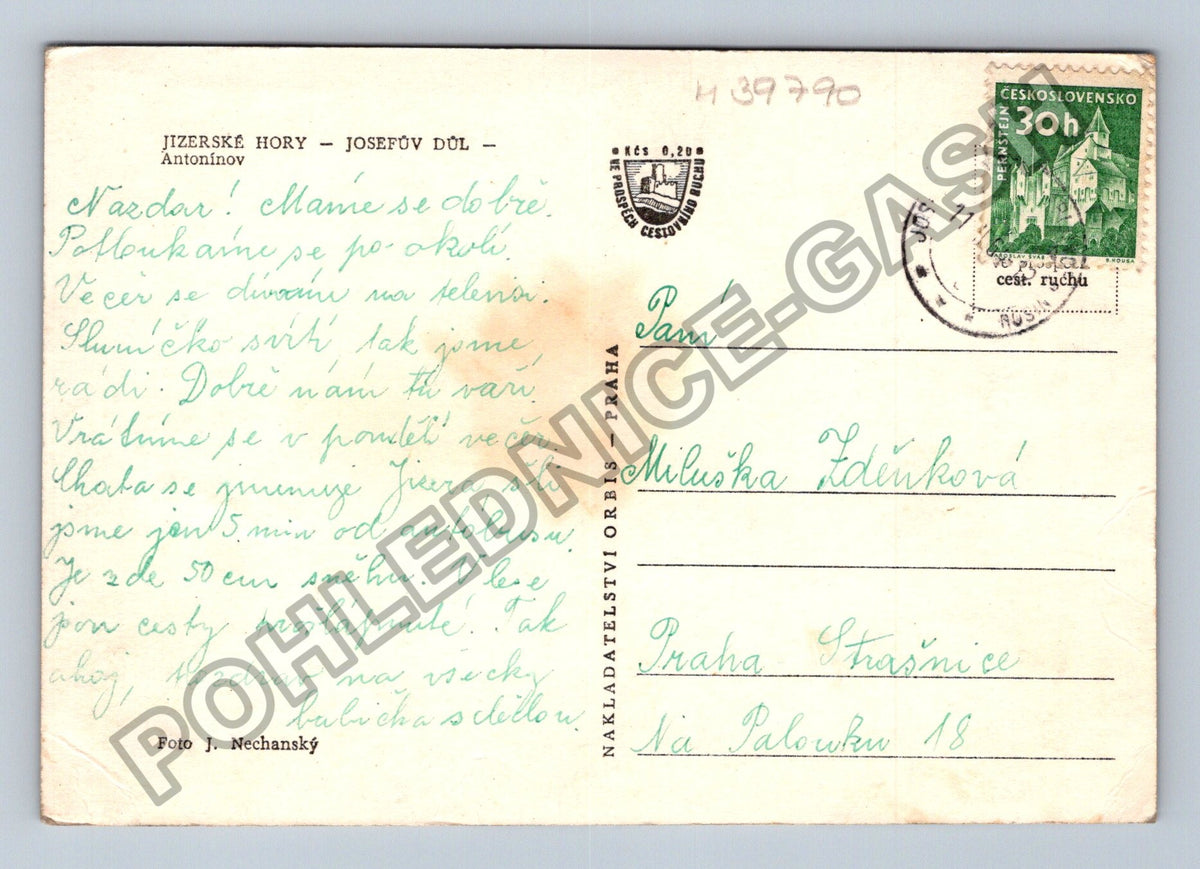 H 39790
JIZERSKÉ HORY — JOSEFŮV DŮL —
Antonínov
Nazdar! Máme se dobře.
Potloukáme se po okolí.
Večer se díváme na televisi.
Sluníčko svítí, tak jsme
rádi. Dobře nám tu vaří.
Vrátíme se v pondělí večer.
Chata se jmenuje Jizera šli
jsme jen 5 min od autobusu.
Je zde 50 cm sněhu. V lese
jsou cesty prošlápnuté. Tak
ahoj, pozdrav na všecky
babička s dědou
Foto J. Nechanský
Kčs 0,20
VE PROSPĚCH CESTOVNÍHO RUCHU
NAKLADATELSTVÍ ORBIS — PRAHA
ČESKOSLOVENSKO
30h
PERNŠTEJN
JAROSLAV ŠVÁB
cest. ruchu
Paní
Miluška Zděnková
Praha Strašnice
Na Palouku 18
POHLEDNICE-GASH